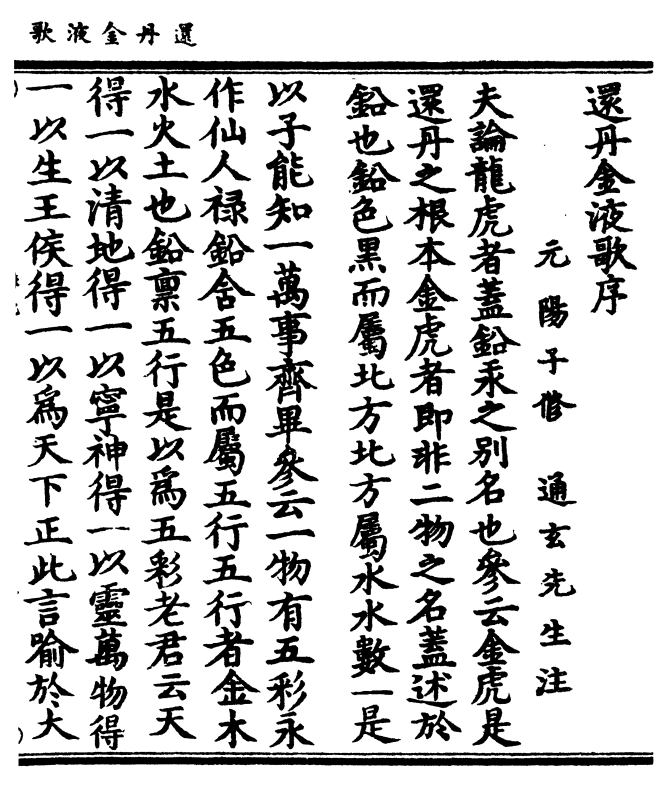 還丹金液歌
還丹金液歌序
元陽子修　通玄先生注
夫論龍虎者蓋鉛汞之别名也參云金虎是
還丹之根本金虎者即非二物之名蓋述於
鉛也鉛色黑而屬北方北方屬水水數一是
以子能知一萬事齊畢參云一物有五彩永
作仙人禄鉛含五色而屬五行五行者金木
水火土也鉛禀五行是以爲五彩老君云天
得一以清地得一以寧神得一以靈萬物得
一以生王侯得一以爲天下正此言喻於大